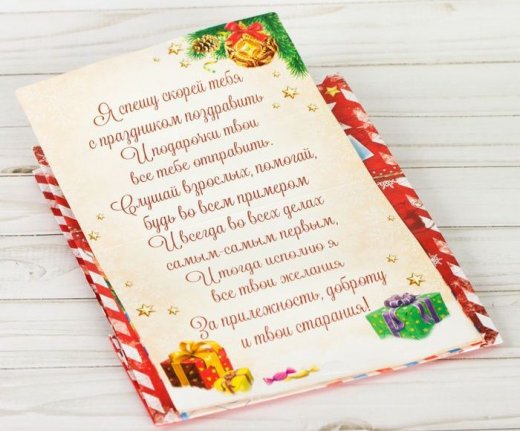 Я спешу скорей тебя
с праздником поздравить
И подарочки твои
все тебе отправить.
Слушай взрослых, помогай,
будь во всем примером
И всегда во всех делах
самым-самым первым,
И тогда исполню я
все твои желания
За прилежность, доброту
и твои старания!